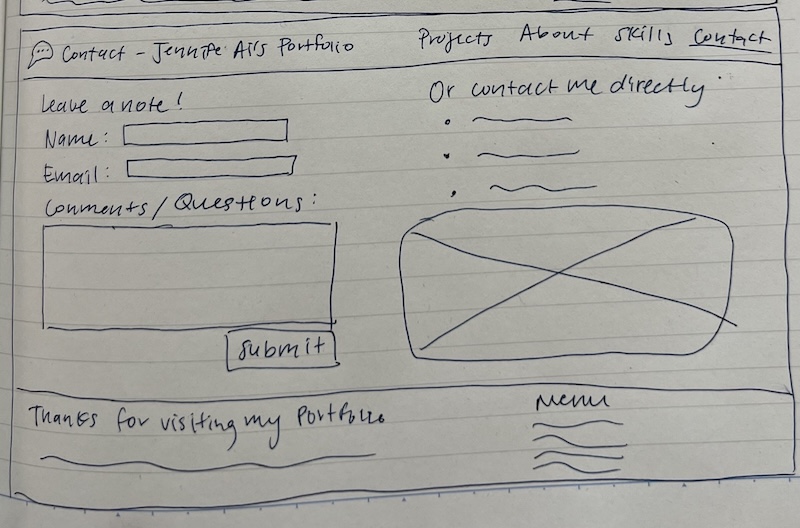 Contact - Jennife Ai's Portfolio
Projects About Skills Contact
Leave a note!
Name:
Email:
Comments/Questions:
Submit
Or contact me directly
Thanks for visiting my Portfolio
Menu